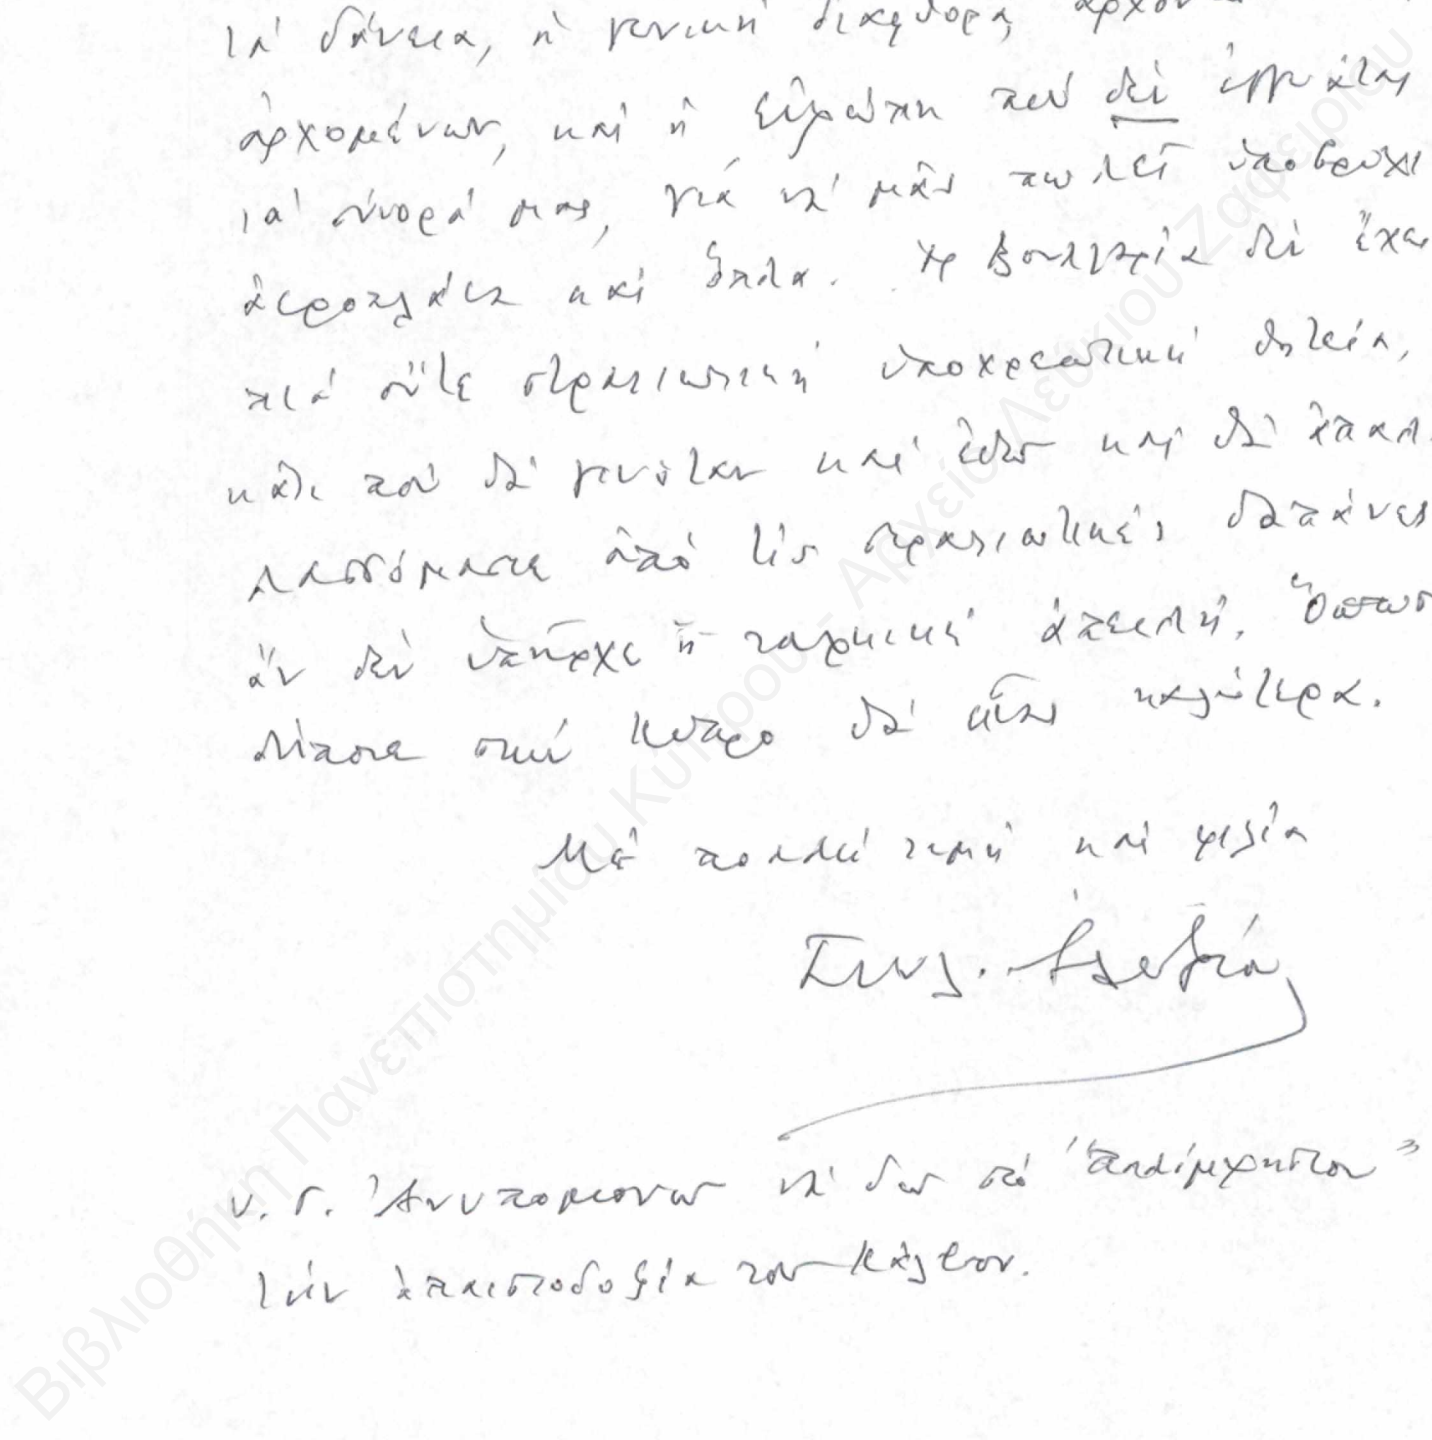 τὰ δάνεια, ἡ γενικὴ διαφθορὰ ἀρχόν
ἀρχομένων, καὶ ἡ Εὐρώπη ποὺ δὲ ἐγγυᾶται
τὰ σύνορά μας, γιὰ νὰ μᾶς πωλεῖ ὑποβρύχι
ἀεροπλάνα καὶ ὅπλα. Ἡ Βουλγαρία δὲ ἔχει
πιὰ οὔτε στρατιωτικὴ ὑποχρεωτικὴ θητεία,
κάτι ποὺ θὰ γινόταν καὶ ἐδῶ καὶ θὰ ἀπαλ
λασσόμαστε ἀπὸ τὶς στρατιωτικὲς δαπάνες
ἂν δὲν ὑπῆρχε ἡ τουρκικὴ ἀπειλή. Ὅπως
στὴν Κύπρο θὰ εἶναι καλύτερα.
Μὲ πολλὴ τιμὴ καὶ φιλία
υ.γ. Ἀνυπομονῶ νὰ δῶ στὸ "παλίμψηστον"
τὴν ἀπαισιοδοξία τοῦ Κάλβου.
Βιβλιοθήκη Πανεπιστημίου Κύπρου - Αρχείο Λεύκιου Ζαφειρίου